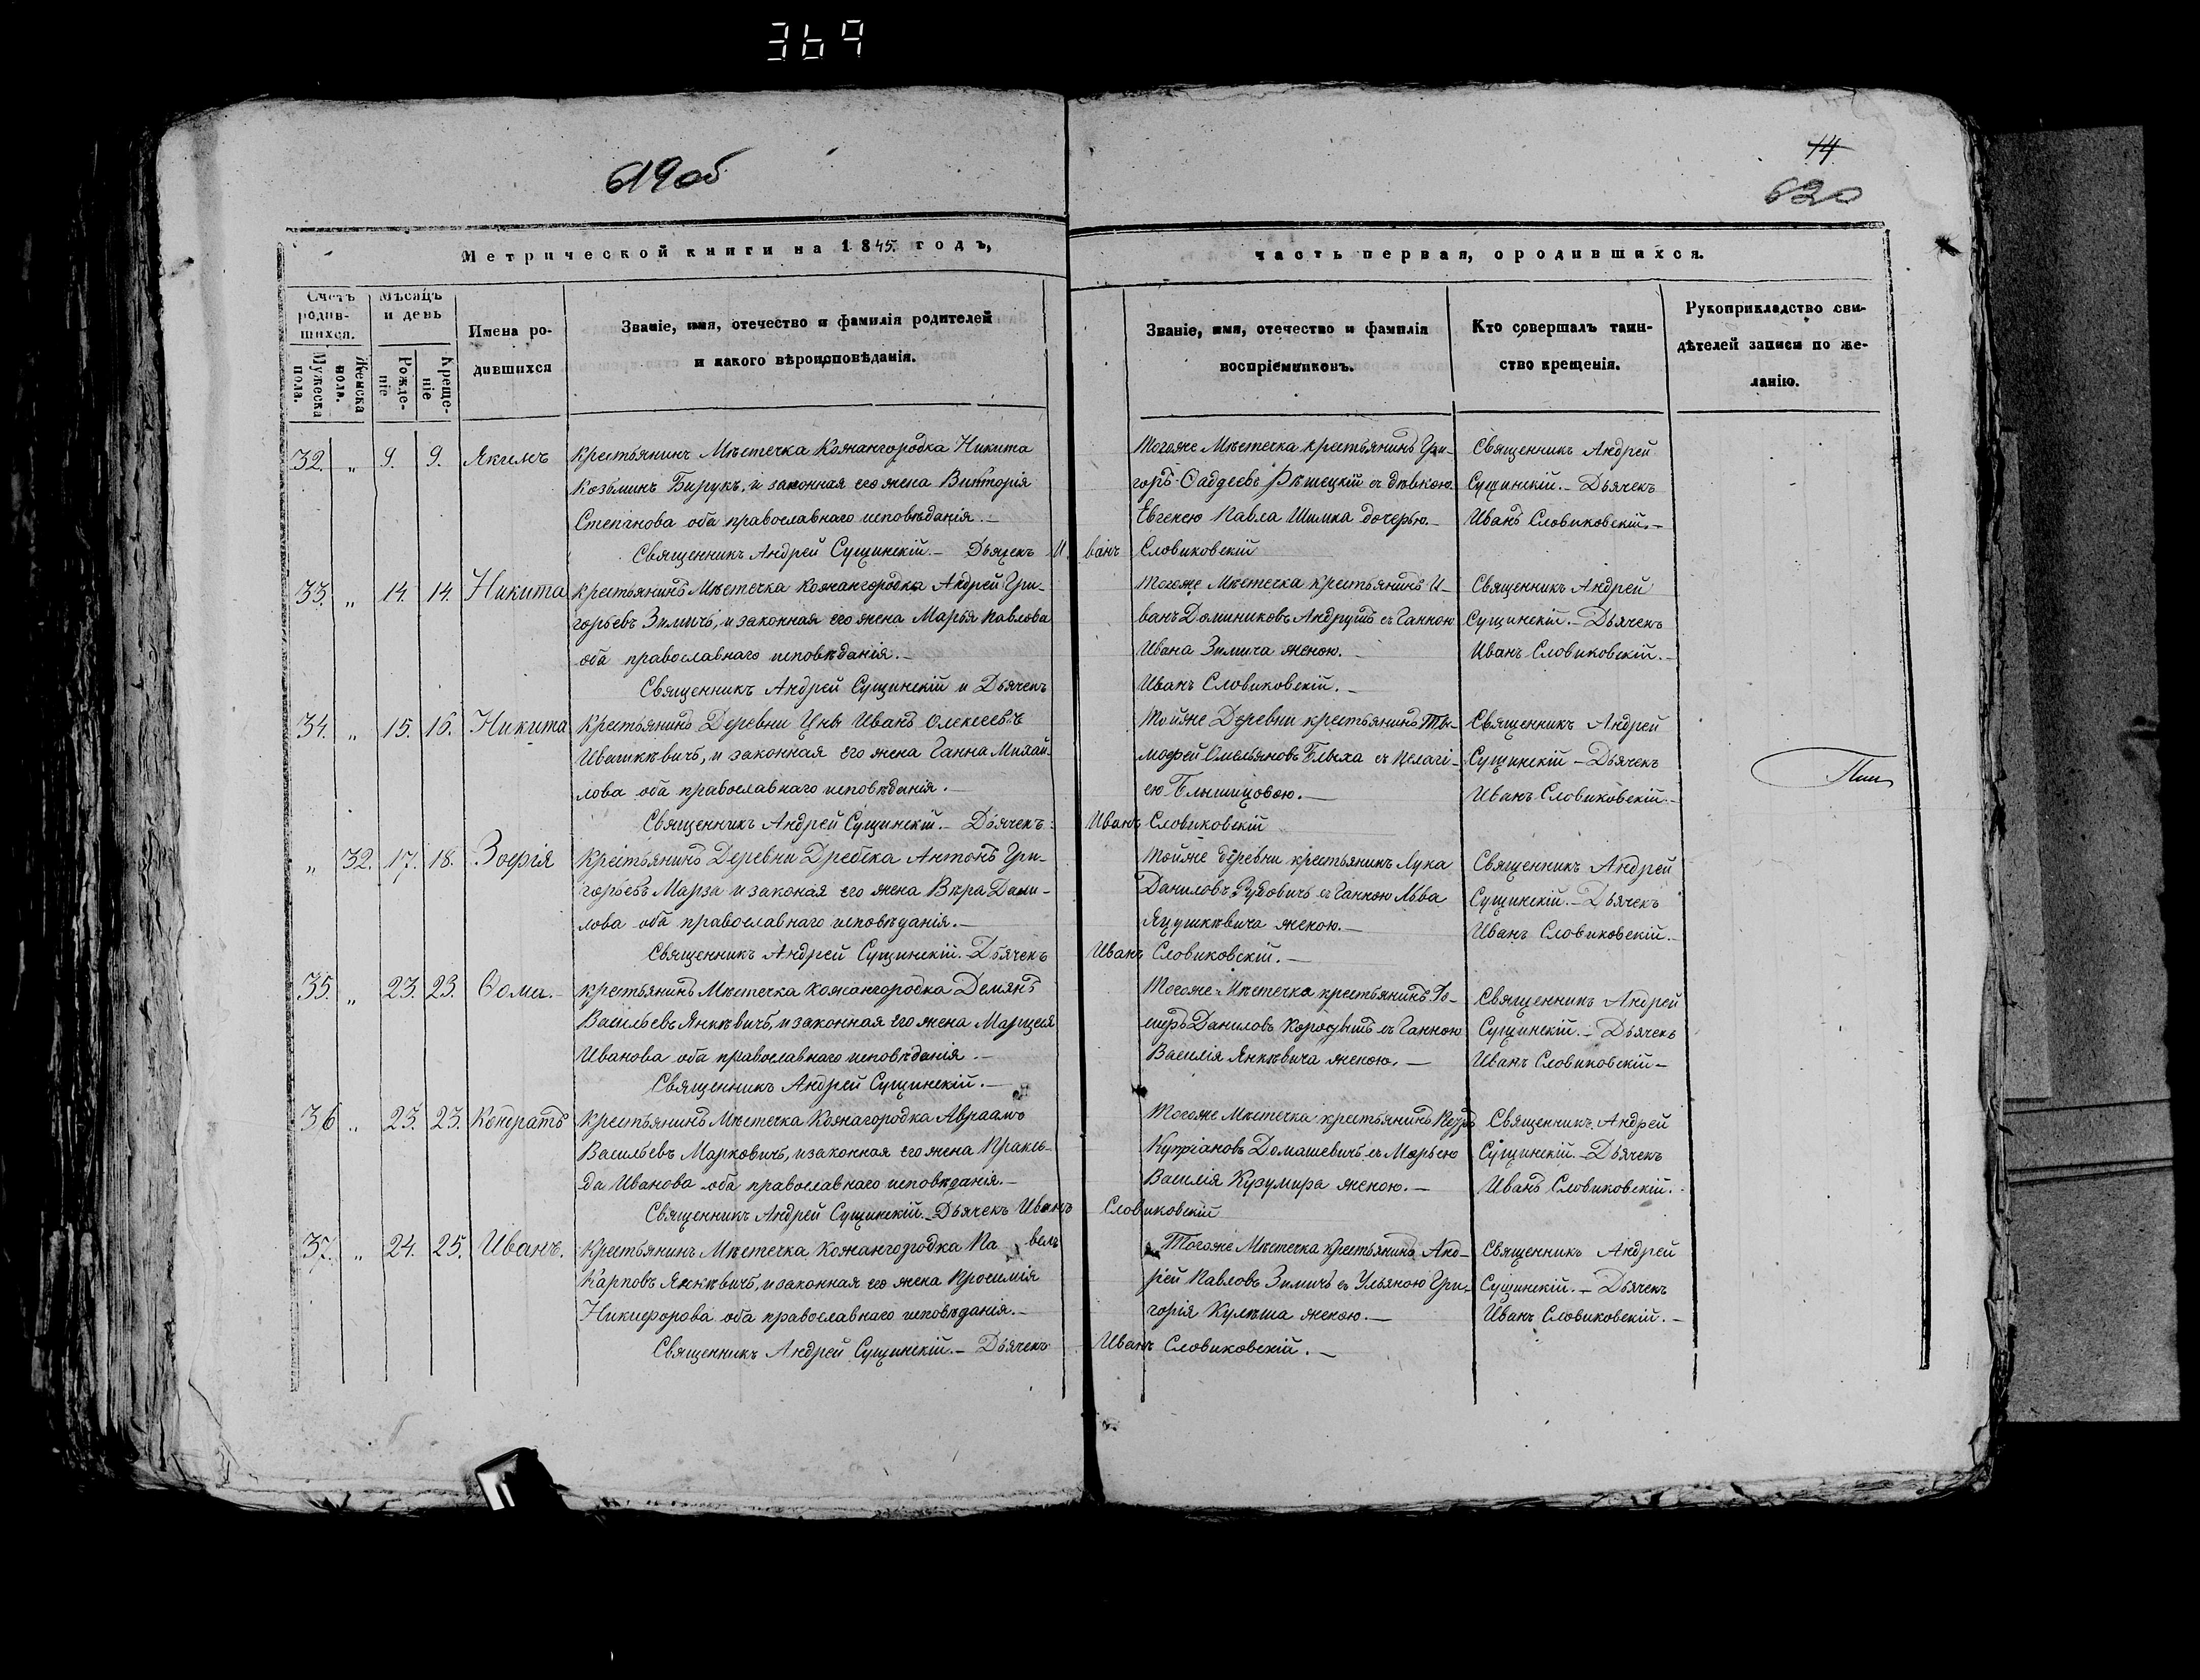 369
619об
14
620
Метрической книги на 1845. годъ,
часть первая, ородившихся.
Счетъ родив-шихся.
Мужеска пола.
Женска пола.
Мѣсяцъ и день
Рожде-ніе
Креще-ніе
Имена ро-
дившихся
Званіе, имя, отечество и фамилія родителей
и какого вѣроисповѣданія.
Званіе, имя, отечество и фамилія
воспріемниковъ.
Кто совершалъ таин-
ство крещенія.
Рукоприкладство сви-
дѣтелей записи по же-
ланію.
32. „ 9. 9. Якимъ
Крестьянинъ Мѣстечка Кожангородка Никита
Козьминъ Бирукъ, и законная его жена Викторія
Степанова оба православнаго исповѣданія.—
Тогоже Мѣстечка крестьянинъ Гри-
горъ Фаддеевъ Рѣшецкій съ дѣвкою
Евгенею Павла Шимка дочерью.—
Священникъ Андрей
Сущинскій.— Дьячекъ
Иванъ Словиковскій.—
Священникъ Андрей Сущинскій.— Дьячекъ Иванъ Словиковскій
33. „ 14. 14. Никита
Крестьянинъ Мѣстечка Кожангородка Андрей Гри-
горьевъ Зимичъ, и законная его жена Марья Павлова
оба православнаго исповѣданія.—
Тогоже Мѣстечка крестьянинъ И-
ванъ Доминиковъ Андрушъ съ Ганною
Ивана Зимича женою.—
Священникъ Андрей
Сущинскій.— Дьячекъ
Иванъ Словиковскій.—
Священникъ Андрей Сущинскій и Дьячекъ Иванъ Словиковскій.—
34. „ 15. 16. Никита
Крестьянинъ Деревни Цны Иванъ Олексеевъ
Ивашкѣвичъ, и законная его жена Ганна Михай-
лова оба православнаго исповѣданія.—
Тойже Деревни крестьянинъ Ти-
мофей Омельяновъ Блыха съ Пелагі-
ею
Священникъ Андрей
Сущинскій — Дьячекъ
Иванъ Словиковскій.—
Священникъ Андрей Сущинскій.— Дьячекъ: Иванъ Словиковскій
„ 32. 17. 18. Зофія
Крестьянинъ Деревни Дребска Антонъ Гри-
горьевъ Марза и законая его жена Вѣра Дани-
лова оба православнаго исповѣданія.—
Тойже деревни крестьянинъ Лука
Даниловъ съ Ганною Льва
Яцушкѣвича женою.—
Священникъ Андрей
Сущинскій.— Дьячекъ
Иванъ Словиковскій.—
Священникъ Андрей Сущинскій. Дьячекъ Иванъ Словиковскій.—
35. „ 23. 23. Фома.—
Крестьянинъ Мѣстечка Кожангородка Демянъ
Васильевъ Янкѣвичъ, и законная его жена Марцеля
Иванова оба православнаго исповѣданія.—
Тогоже Мѣстечка крестьянинъ
Даниловъ съ Ганною
Василія Янкѣвича женою.—
Священникъ Андрей
Сущинскій.— Дьячекъ
Иванъ Словиковскій—
Священникъ Андрей Сущинскій.—
36 „ 23. 23. Кондратъ
Крестьянинъ Мѣстечка Кожагородка Авраамъ
Васильевъ Марковичъ, и законная его жена Праксѣ-
да Иванова оба православнаго исповѣданія.—
Тогоже Мѣстечка крестьянинъ
Купріановъ Домашевичъ съ Марьею
Василія Кузумира женою.—
Священникъ Андрей
Сущинскій.— Дьячекъ
Иванъ Словиковскій.
Священникъ Андрей Сущинскій.— Дьячекъ Иванъ Словиковскій
37. „ 24. 25. Иванъ.
Крестьянинъ Мѣстечка Кожангородка Павелъ
Карповъ Янкѣвичъ, и законная его жена Просимія
Никифорова оба православнаго исповѣданія.—
Тогоже Мѣстечка крестьянинъ Анд-
рей Павловъ Зимичъ съ Ульяною Гри-
горія Кулѣша женою.—
Священникъ Андрей
Сущинскій.— Дьячекъ
Иванъ Словиковскій.—
Священникъ Андрей Сущинскій.— Дьячекъ Иванъ Словиковскій.—